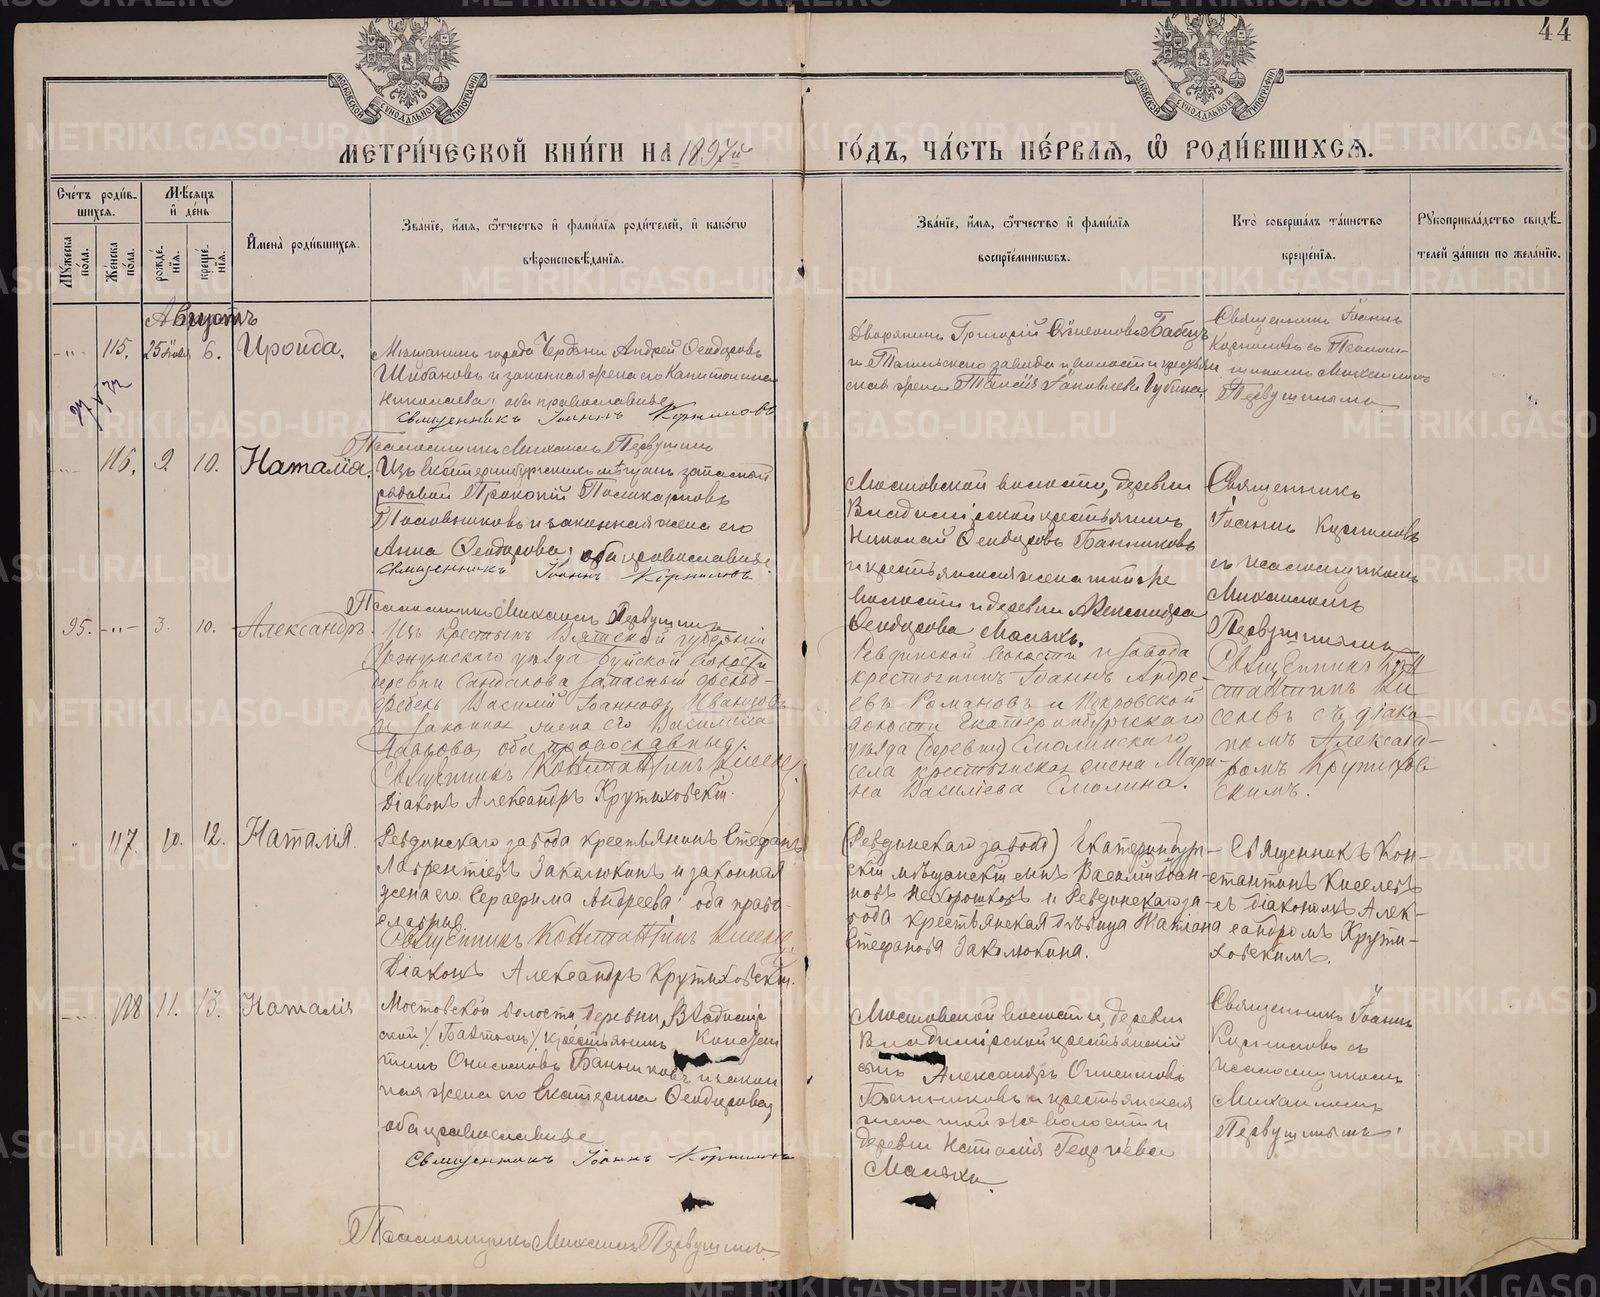 44
МОСКОВСКОЙ СѴНОДАЛЬНОЙ ТИПОГРАФІИ
МОСКОВСКОЙ СѴНОДАЛЬНОЙ ТИПОГРАФІИ
МЕТРИ́ЧЕСКОЙ КНИ́ГИ НА 1897й ГО́ДЪ, ЧА́СТЬ ПЕ́РВАЯ, Ѡ РОДИ́ВШИХСЯ.
Сче́тъ роди́вшихся.
Му́жеска по́ла.
Же́нска по́ла.
Мѣ́сяцъ и де́нь
рожде́нія.
креще́нія.
Имена̀ роди́вшихся.
Зва́ніе, и́мя, ѻ́тчество и фами́лія роди́телей, и како́гѡ вѣроисповѣ́данія.
Зва́ніе, и́мя, ѻ́тчество и фами́лія воспріе́мниковъ.
Кто̀ соверша́лъ та́инство креще́нія.
Рукоприкла́дство свидѣ́телей за́писи по жела́нію.
Августъ
115. 25 Іюля 6. Ираида.
Мѣщанинъ города Чердыни Андрей Ѳеодоровъ
Шибановъ и законная жена его Капитолина
Николаева; оба православные
Священникъ Іоаннъ Корниловъ
Псаломщикъ Михаилъ Первушинъ
Дворянинъ Григорій
и Тагильскаго завода и волости крестьян
ская жена Таисія Іаковлева Губина.
Священникъ Іоаннъ
Корниловъ съ Псалом
щикомъ Михаиломъ
Первушинымъ
116. 2. 10. Наталія.
Изъ Екатеринбургскихъ мѣщанъ запасной
рядовой Прокопій Поликарповъ
Половниковъ и законная жена его
Анна Ѳеодорова; оба православные.
Священникъ Іоаннъ Корниловъ
Псаломщикъ Михаилъ Первушинъ
Мостовской волости, деревни
Владимірской крестьянинъ
Николай Ѳеодоровъ Банниковъ
и крестьянская жена той же
волости и деревни Александра
Ѳеодорова Малыхъ.
Священникъ
Іоаннъ Корниловъ
съ псаломщикомъ
Михаиломъ
Первушинымъ
95. 3. 10. Александръ.
Изъ крестьянъ Вятской губерніи
Уржумскаго уѣзда Буйской волости
деревни Сандалова запасный фельд-
фебель Василій Іоанновъ Иванцовъ
и законная жена его Василиса
оба православные.
Священникъ Константинъ Киселев
Діаконъ Александръ Крутиховскій.
Ревдинской волости и завода
крестьянинъ Іоаннъ Андре-
евъ Романовъ и Покровской
волости Екатеринбургскаго
уѣзда (деревни) Смолинскаго
села крестьянская жена Мари-
на Василіева Смолина.
Священникъ Кон
стантинъ Ки
селевъ съ діако-
номъ Александ-
ромъ Крутихов
скимъ.
117. 10. 12. Наталія.
Ревдинскаго завода крестьянинъ Стефанъ
Лаврентіевъ Заколюкинъ и законная
жена его Серафима Андреева; оба право-
славные
Священникъ Константинъ Киселев
Діаконъ Александръ Крутиховскій.
(Ревдинскаго завода) Екатеринбург-
скій мѣщанскій сынъ Василій Іоан-
новъ Нехорошковъ и Ревдинскаго за-
вода крестьянская дѣвица
Стефанова Заколюкина.
Священникъ Кон-
стантинъ Киселевъ
съ діакономъ Алек-
сандромъ Крути-
ховскимъ.
118 11. 13. Наталія
Мостовской волости, деревни, Владимір
ской /Балтым/ крестьянинъ Констан
тинъ Онисимовъ Банниковъ и закон
ная жена его Екатерина Ѳеодорова,
оба православные
Священникъ Іоаннъ Корниловъ
Псаломщикъ Михаилъ Первушинъ
Мостовской волости, деревни
Владимірской крестьянскій
сынъ Александръ Онисимовъ
Банниковъ и крестьянская
жена той же волости и
деревни Наталія Георгіева
Малыхъ.
Священникъ Іоаннъ
Корниловъ съ
псаломщикомъ
Михаиломъ
Первушинымъ.
METRIKI.GASO-URAL.RU